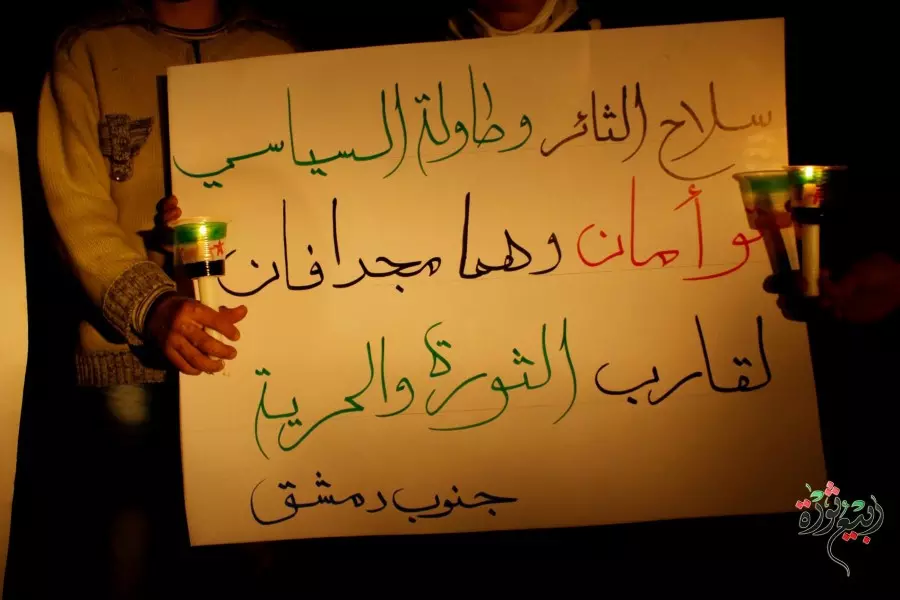 سلاح الثائر وطاولة السياسي
توأمان وهما مجدافان
لقارب الثورة والحرية
جنوب دمشق
ربيع ثورة